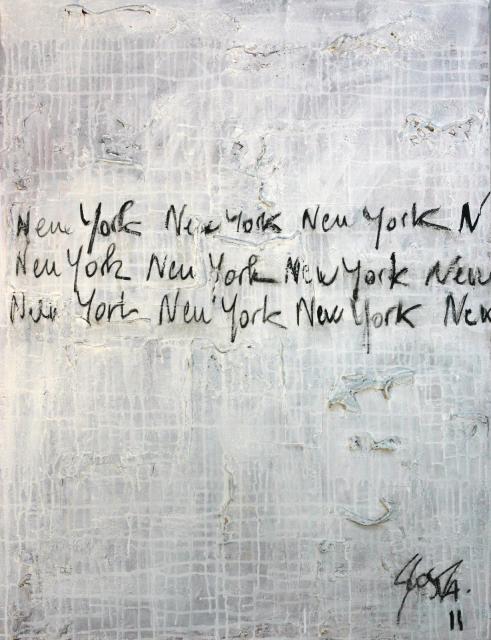 New York New York New York N
New York New York New York New
New York New York New York New
11